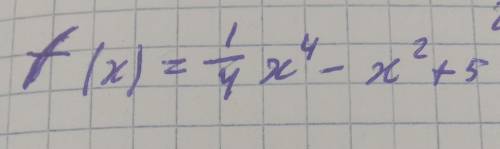 f(x) = 1/4 x⁴ - x² + 5